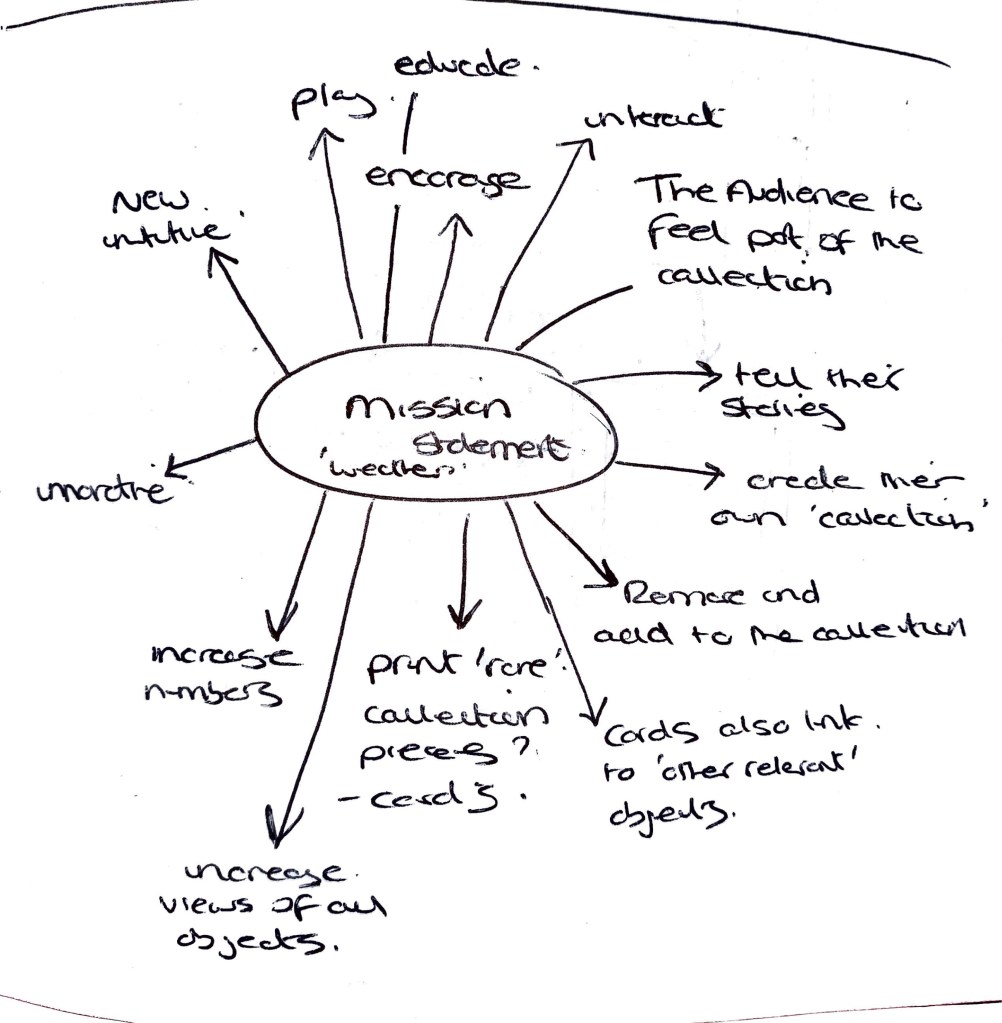 educate.
play.
interact
encorage
New
The Audience to
feel part of the
collection
tell their
stories
Mission
statement
create their
own 'collection'
and
add to the collection
increase
numbers
print 'rare'
collection
pieces?
- cards.
Cards also link
to 'other relevant'
objects.
increase
views of all
objects.